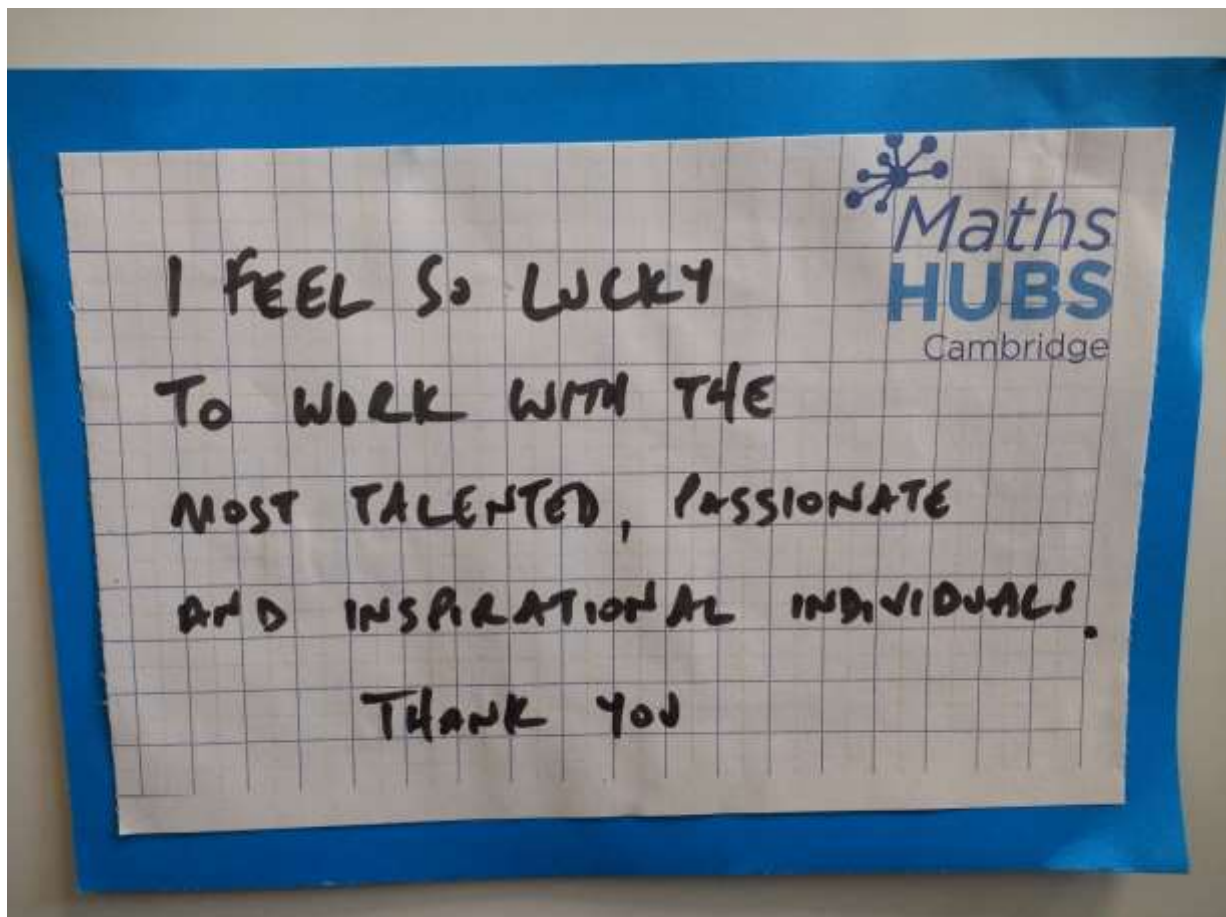 Maths
HUBS
Cambridge
I FEEL So LUCKY
To WORK WITH THE
MOST TALENTED, PASSIONATE
AND INSPIRATIONAL INDIVIDUALS.
THANK YOU